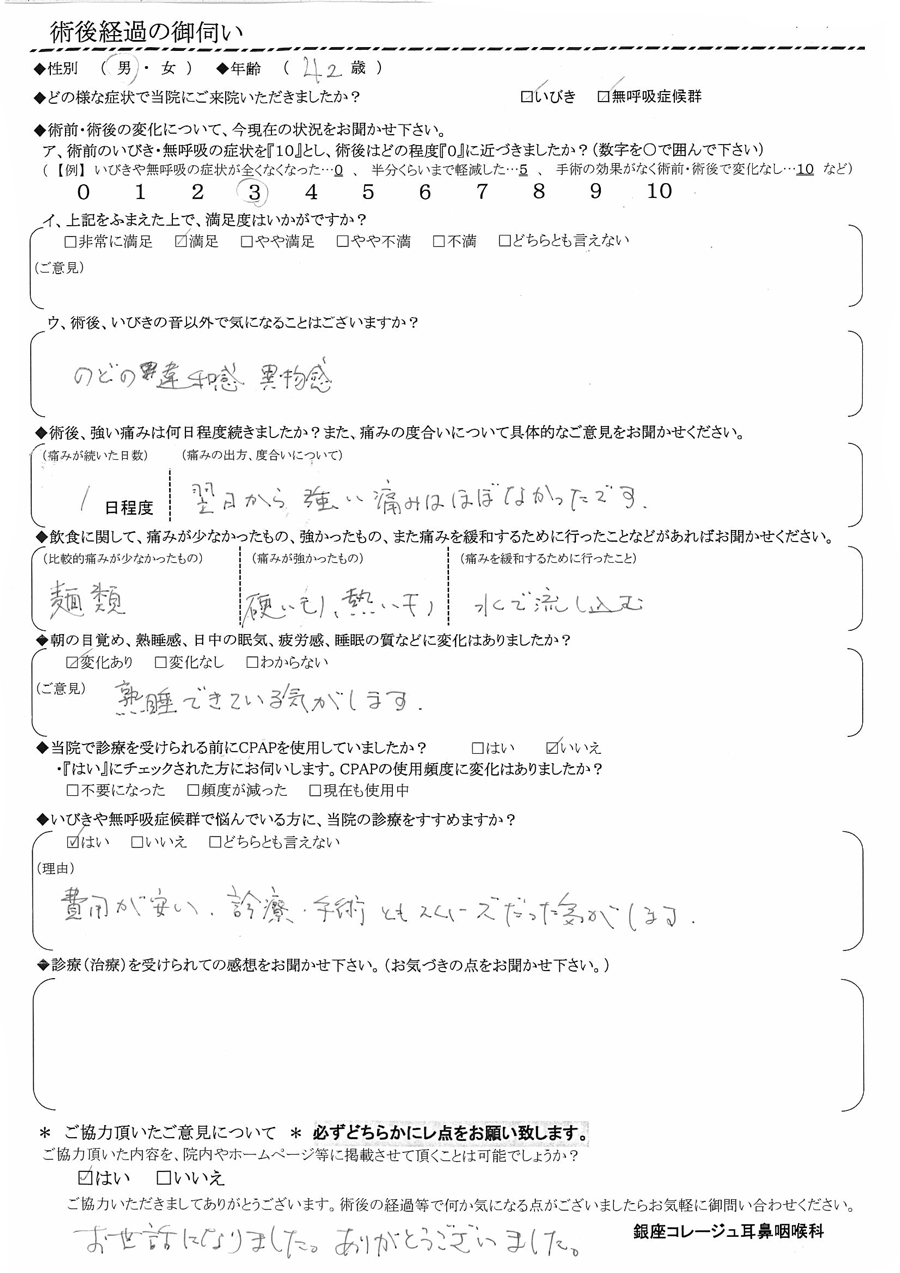 術後経過の御伺い
◆性別 ( 男 ・ 女 ) ◆年齢 ( 42 歳 )
◆どの様な症状で当院にご来院いただきましたか? ☑いびき ☑無呼吸症候群
◆術前・術後の変化について、今現在の状況をお聞かせ下さい。
ア、術前のいびき・無呼吸の症状を『10』とし、術後はどの程度『0』に近づきましたか?(数字を○で囲んで下さい)
(【例】いびきや無呼吸の症状が全くなくなった…0 、 半分くらいまで軽減した…5 、 手術の効果がなく術前・術後で変化なし…10 など)
0 1 2 3 4 5 6 7 8 9 10
イ、上記をふまえた上で、満足度はいかがですか?
□非常に満足 ☑満足 □やや満足 □やや不満 □不満 □どちらとも言えない
(ご意見)
ウ、術後、いびきの音以外で気になることはございますか?
のどの違和感 異物感
◆術後、強い痛みは何日程度続きましたか?また、痛みの度合いについて具体的なご意見をお聞かせください。
(痛みが続いた日数) (痛みの出方、度合いについて)
1 日程度 翌日から強い痛みはほぼなかったです.
◆飲食に関して、痛みが少なかったもの、強かったもの、また痛みを緩和するために行ったことなどがあればお聞かせください。
(比較的痛みが少なかったもの) (痛みが強かったもの) (痛みを緩和するために行ったこと)
麺類 硬いもの、熱いもの 水で流し込む
◆朝の目覚め、熟睡感、日中の眠気、疲労感、睡眠の質などに変化はありましたか?
☑変化あり □変化なし □わからない
(ご意見) 熟睡できている気がします.
◆当院で診療を受けられる前にCPAPを使用していましたか? □はい ☑いいえ
・『はい』にチェックされた方にお伺いします。CPAPの使用頻度に変化はありましたか?
□不要になった □頻度が減った □現在も使用中
◆いびきや無呼吸症候群で悩んでいる方に、当院の診療をすすめますか?
☑はい □いいえ □どちらとも言えない
(理由)
費用が安い.診療・手術ともスムーズだった気がします.
◆診療(治療)を受けられての感想をお聞かせ下さい。(お気づきの点をお聞かせ下さい。)
＊ ご協力頂いたご意見について ＊ 必ずどちらかにレ点をお願い致します。
ご協力頂いた内容を、院内やホームページ等に掲載させて頂くことは可能でしょうか?
☑はい □いいえ
ご協力いただきましてありがとうございます。術後の経過等で何か気になる点がございましたらお気軽に御問い合わせください。
お世話になりました。ありがとうございました。
銀座コレージュ耳鼻咽喉科